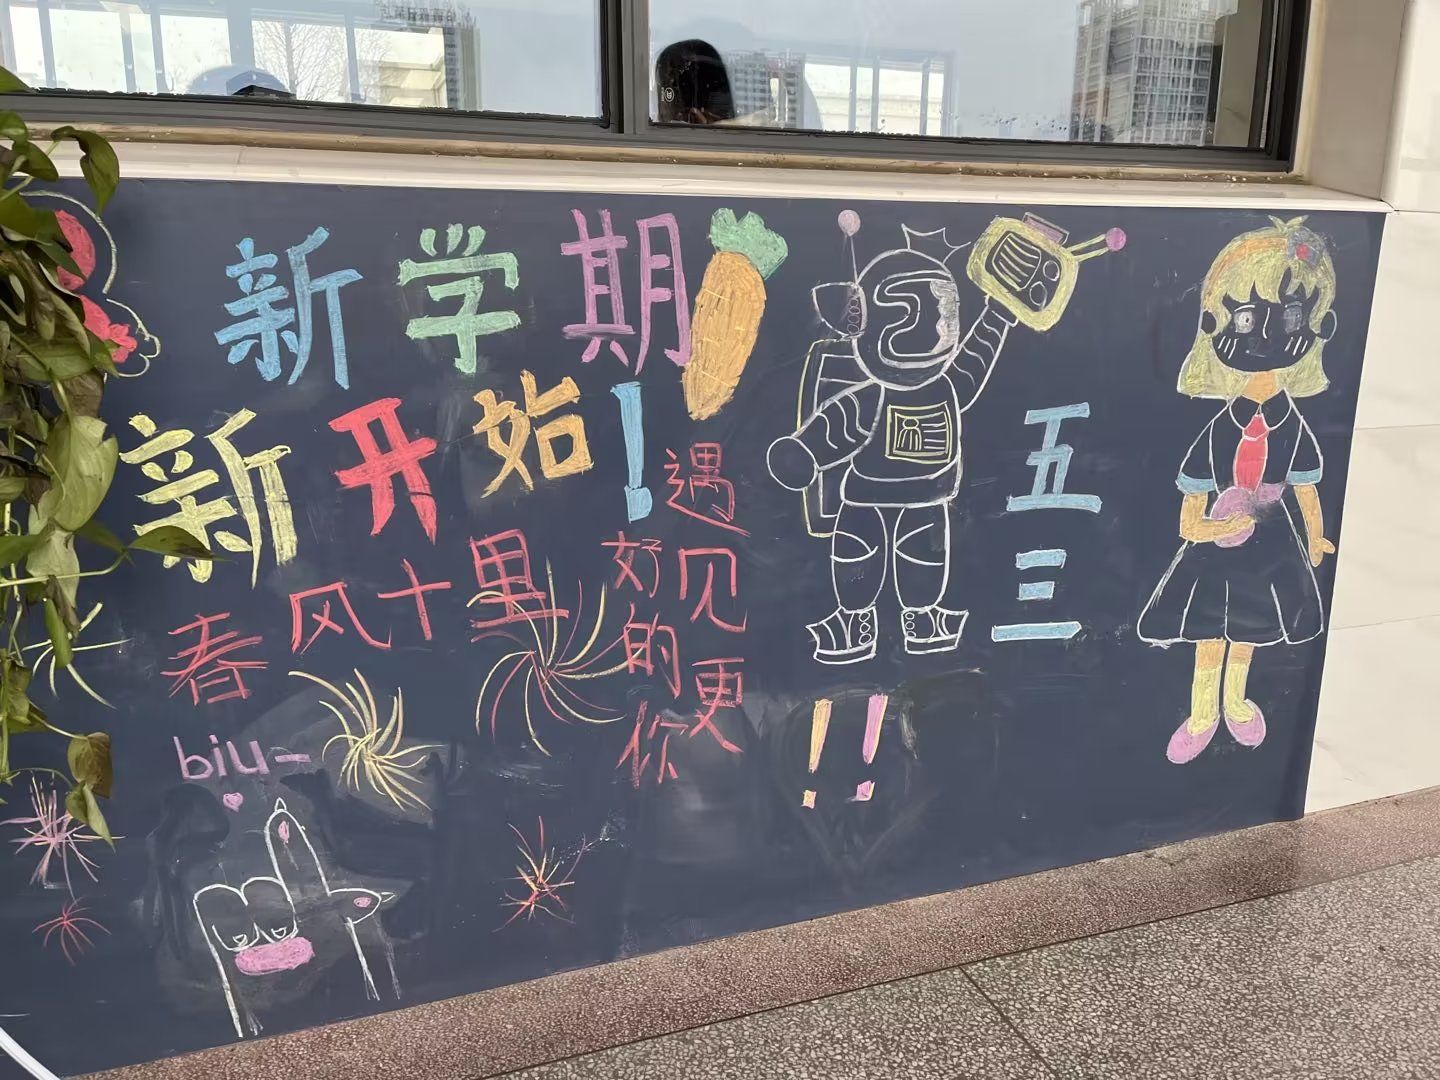 新学期
新开始!
春风十里
遇见更
好的你
biu-
五三
!!